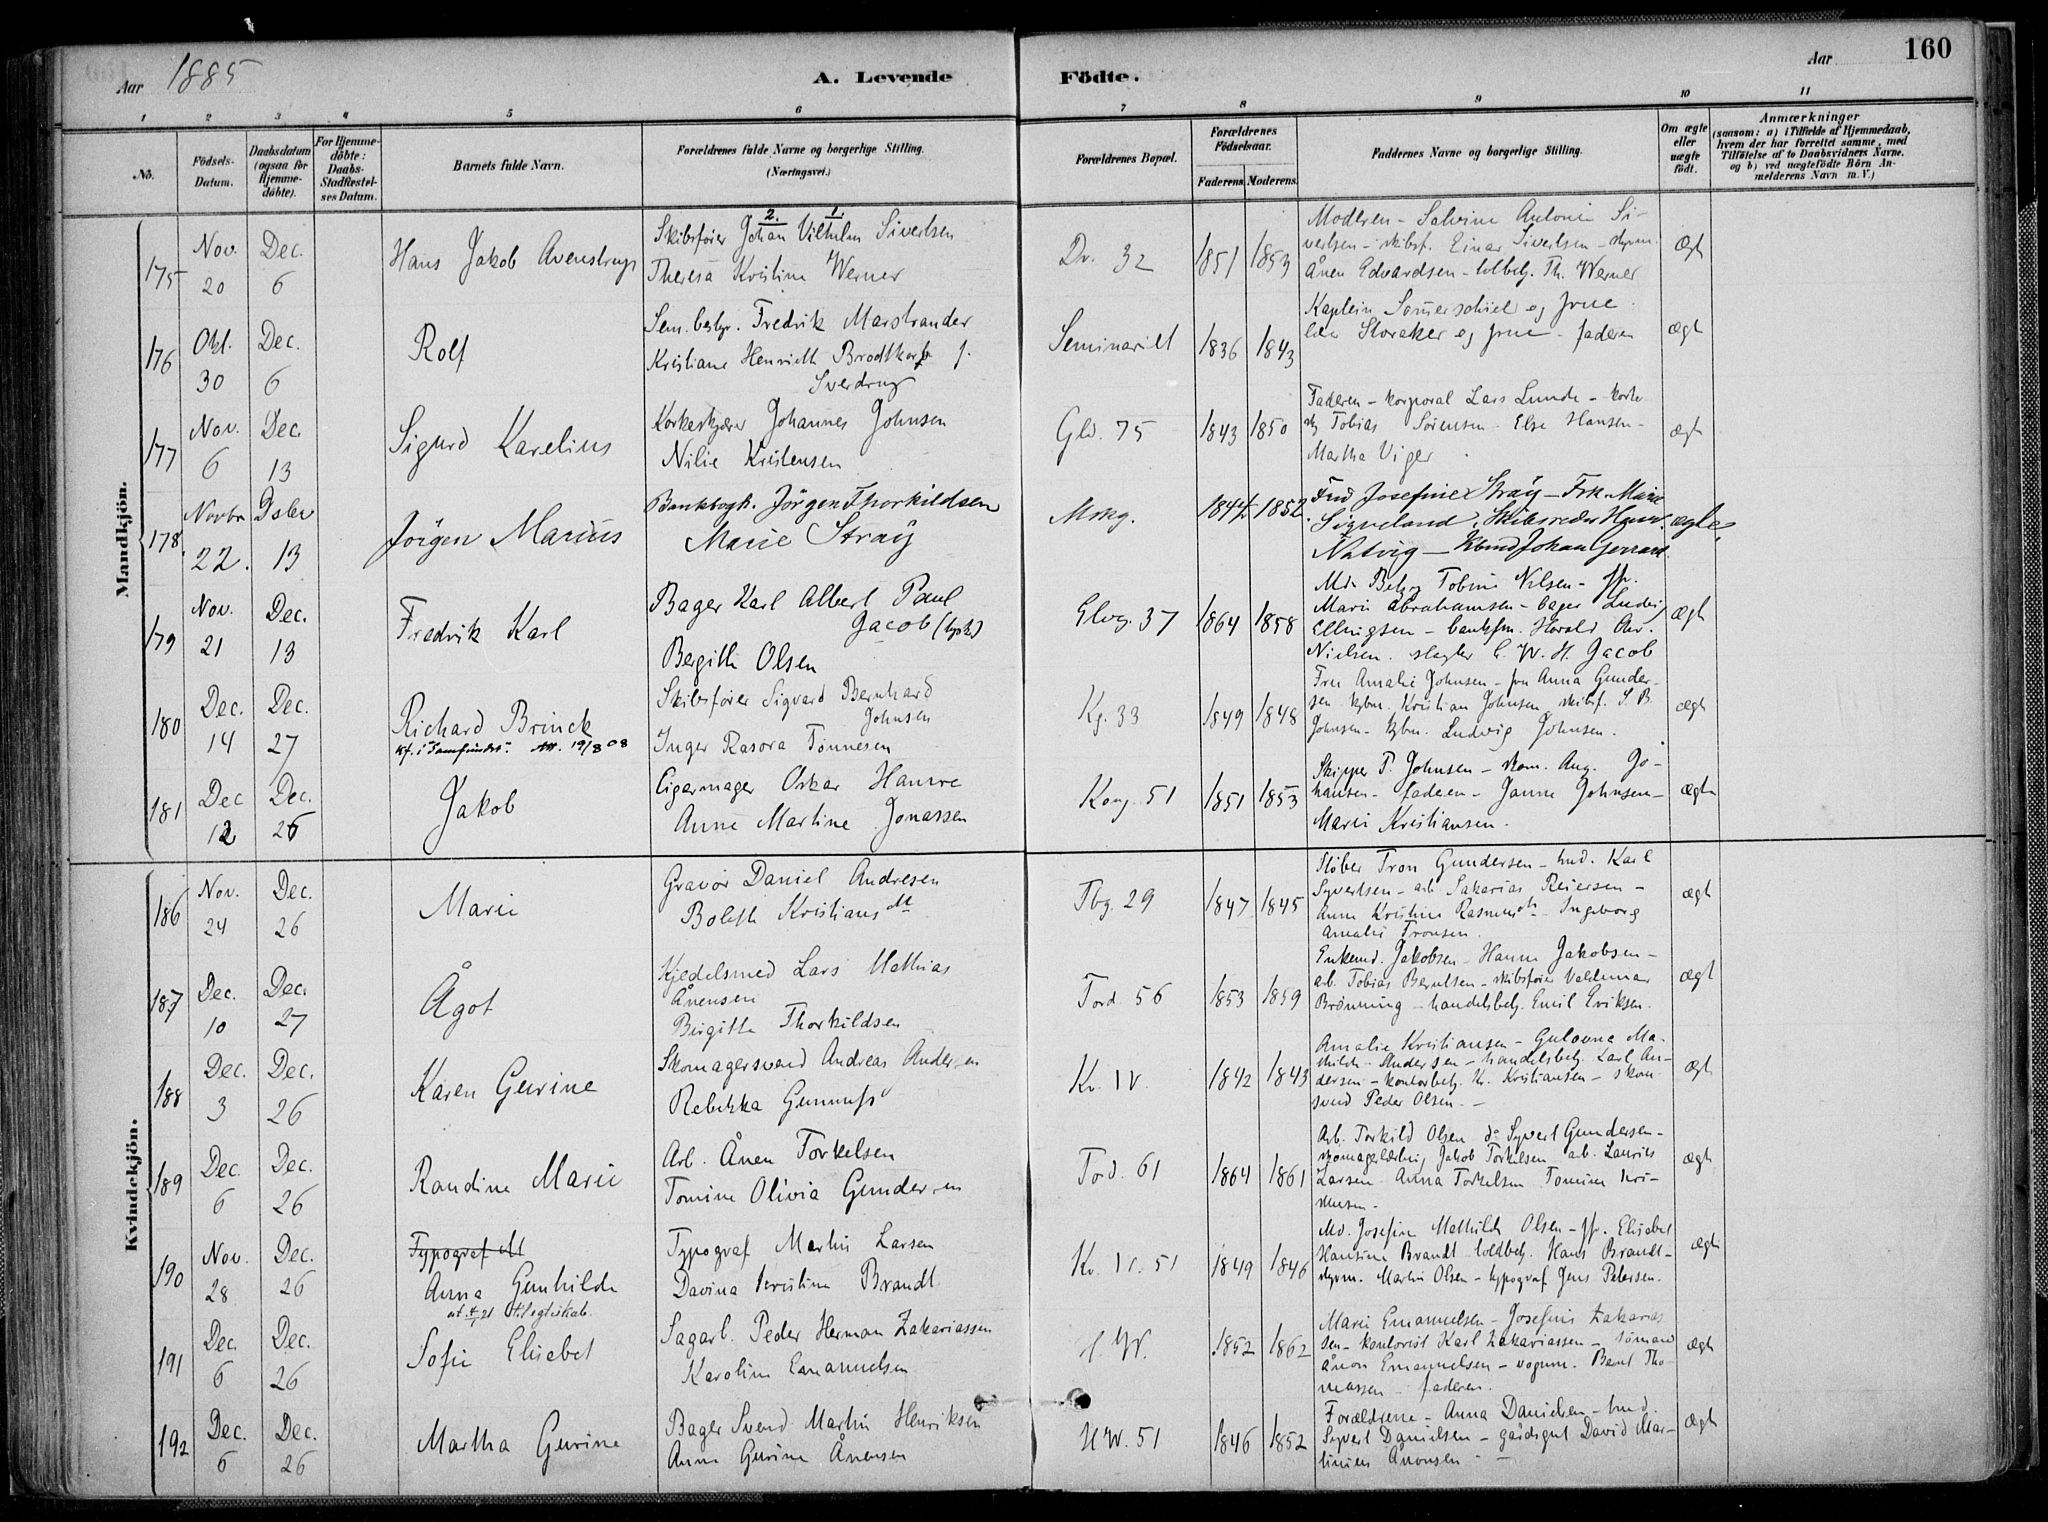 Aar 1885
A. Levende
Födte.
Aar
160
1 2 3 4 5 6 7 8 9 10 11
No.
Födsels-Datum.
Daabsdatum (ogsaa for Hjemmedöbte).
For Hjemmedöbte: Daabs-Stadfæstelses Datum.
Barnets fulde Navn.
Forældrenes fulde Navne og borgerlige Stilling. (Næringsvei.)
Forældrenes Bopæl.
Forældrenes Födselsaar.
Faderens. Moderens.
Faddernes Navne og borgerlige Stilling.
Om ægte eller uægte födt.
Anmærkninger
(saasom: a) i Tilfælde af Hjemmedaab, hvem der har forrettet samme, med Tilföielse af to Daabsvidners Navne. og b) ved uægtefödte Börn Anmelderens Navn m. V.)
Mandkjön.
175 Nov. 20 Dec. 6
Hans Jakob Avenstrup
2. 1.
Skibsfører Johan Vilhelm Sivertsen
Theresa Kristine Werner
Dr. 32 1851 1853
Moderen – Salvine Antonie Si-
vertsen – skibsf. Einar Sivertsen – styrm.
Ånen Edvardsen – toldbetj. Th. Werner
Ægt
176 Okt. 30 Dec. 6
Rolf
Sem. bestyr. Fredrik Marstrander
Kristiane Henriette Brodtkorb f.
Sverdrup
Seminariet 1836 1843
Kaptein Sømerschiel og frue
Storaker og frue – faderen
ægt
177 Nov. 6 Dec. 13
Sigurd Karelius
Korkeskjærer Johannes Johnsen
Nilie Kristensen
Glv. 75 1843 1850
Faderen – korporal Lars Lunde –
Tobias Sørensen – Else Hansen –
Martha Viger
ægt
178. Novbr 22. Dcbr 13
Jörgen Marius
Bankbogh. Jörgen Thorkildsen
Marie Straÿ
Mrkg. 1844 1852
Frü Josefine Straÿ – Frk. Marie
Sigveland, Skibsreder
Natvig – Kbmd Johan Gerrard
ægte,
179 Nov. 21 Dec. 13
Fredrik Karl
Bager Karl Albert Paul
Jacob (tysk)
Bergith Olsen
Glvg. 37 1864 1858
Tobine Nilsen – fr.
Marie Abrahamsen – bager Ludvig
Ellingsen – bankfm. Harald Chr.
Nielsen. slagter C. W. H. Jacob
ægt
180 Dec. 14 Dec. 27
Richard Brinck
Skibsfører Sigvard Bernhard
Johnsen
Inger Rasora Tønnesen
Kg. 33 1849 1848
Fru Amalie Johnsen – fru Anna Gunder-
sen kjbm. Kristian Johnsen skibsf. S. B.
Johnsen – kjbm. Ludvig Johnsen.
ægt
181 Dec 12 Dec. 26
Jakob
Cigarmager Oskar Hansen
Anne Martine Jonassen
Kong. 51 1851 1853
Skipper T. Johnsen – skom. Aug. Jo-
hansen – faderen – Janne Johnsen –
Marie Kristiansen.
ægt
Kvindekjön.
186 Nov. 24 Dec. 26
Marie
Gravør Daniel Andresen
Boleth Kristiansdtt
Tbg. 29 1847 1845
Støber Tron Gundersen – hmd. Karl
Syvertsen – arb. Sakarias Reiersen –
Anne Kristine – Ingeborg
Amalie Tronsen.
ægt
187 Dec. 10 Dec. 27
Ågot
Kjedelsmed Lars Mathias
Ånensen
Birgitte Thorkildsen
Tord. 56 1853 1859
Enkemd. Jakobsen – Hanne Jakobsen –
arb. Tobias Berntsen – skibsfører Valdemar
Brönning – handelsbetj. Emil Eriksen.
ægt
188 Dec. 3 Dec. 26
Karen Gurine
Skomagersvend Andreas Andersen
Rebekka
Kv. IV. 1842 1843
Amalie Kristiansen – Gulovna Ma-
thilde Andersen – handelsbetj. Karl An-
dersen – kontorbetj. Kr. Kristiansen – skom
svend Peder Olsen. –
ægt
189 Dec. 6 Dec. 26
Randine Marie
Arb. Ånen Torkelsen
Tomine Olivia Gundersen
Tord. 61 1864 1861
Arb. Torkild Olsen do Syvert Gundersen –
skomagerlærling Jakob Torkelsen arb. Laurits
Larsen. Anna Torkelsen Tomine Kri-
stensen –
ægt
190 Nov. 28 Dec. 26
Typograf M
Anna Gunhilde
Typograf Martin Larsen
Davina Kristine Brandt
Kv. 51 1849 1846
Md. Josefine Mathilde Olsen – fr. Elisabet
Hansine Brandt toldbetj. Hans Brandt –
styrm. Martin Olsen – typograf Jens Petersen.
ægt
191 Dec. 6 Dec. 26
Sofie Elisabet
Sagarb. Peder Herman Zakariassen
Karoline Emanuelsen
1852 1862
Marie Emanuelsen – Josefine Zakarias
sen – kontorist Karl Zakariassen – sømand
Ånon Emanuelsen – vognm. Bernt Tho-
massen – faderen.
ægt
192 Dec. 6 Dec. 26
Martha Gurine
Bager Svend Martin Henriksen
Anne Gurine Ånensen
51 1846 1852
Forældrene – Anna Danielsen – hmd.
Syvert Danielsen – gårdsgut David Mar-
tinius Ånonsen –
ægt